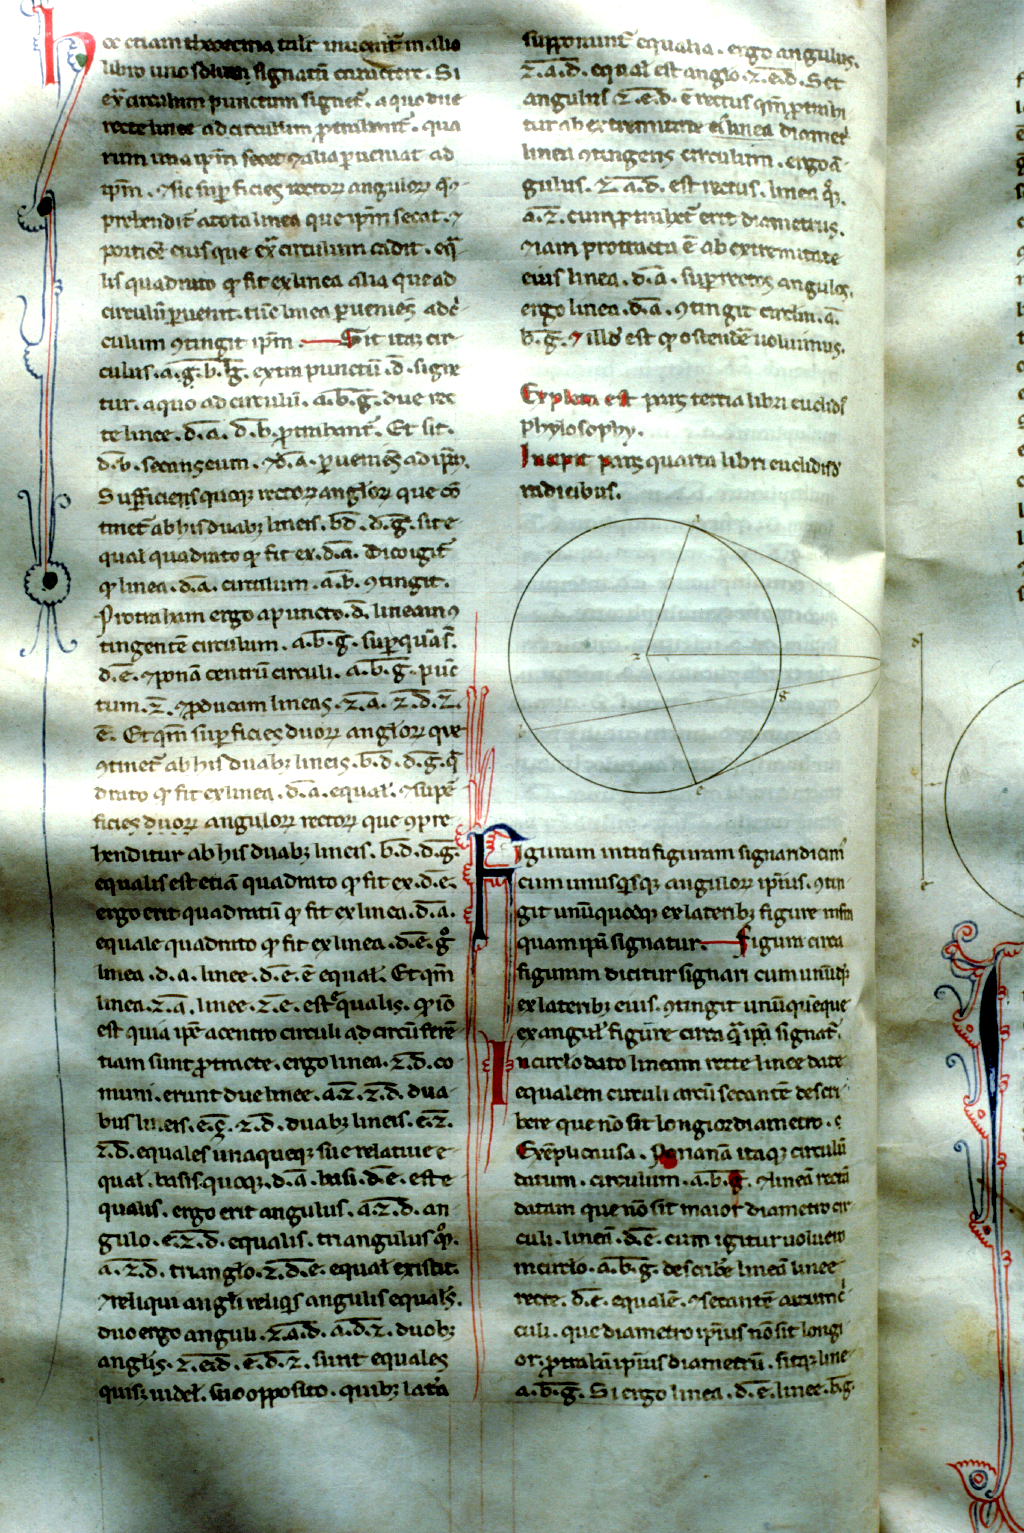 hoc etiam theorema taliť inueniť in alio
libro uno solum signatū caractere. Si
ex̄ circulum punctum signeť. a quo due
recte linee ad circulum ꝓtrahanť. qua
rum una ip̄m secet ⁊ alia ꝑueniat ad
ip̄m. ⁊ sic suꝑficies rectoꝝ anguloꝝ q̄
prehendit᷑ a tota linea que ip̄m secat. ⁊
portiōe eius que ex̄ circulum cadit. eq̄
lis quadrato qđ fit ex linea alia que ad
circulū ꝑuenit. tūc linea ꝑueniēs ad cͥ
culum ꝯtingit ip̄m. Sit itaꝫ cir
culus .a.g.b. extra punctū .d. signe
tur. a quo ad circulū .a.b.g. due rec
te linee .d.a. d.b. ꝓtrahanť. Et sit
.d.b. secans eum. ⁊ .d.a. ꝑueniēs ad ip̄m.
Suꝑficies quoqꝫ rectoꝝ angl̓oꝝ que cō
tineť ab his duabꝫ lineis .bd. d.g. sit e
qual̓ quadrato qđ fit ex .d.a. Dico igiť
qđ linea .d.a. circulum .a.b. ꝯtingit.
Protraham ergo a puncto .d. lineam ꝯ
tingentē circulum .a.b.g. suꝑ qua s̄.
d.e. ⁊ ponā centrū circuli .a.b.g. punc
tum .z. ⁊ ꝓducam lineas .z.a. z.d. z.
e. Et qm̄ suꝑficies duoꝝ angl̓oꝝ que
ꝯtineť ab his duabꝫ lineis .b.d. d.g. q̄
drato qđ fit ex linea .d.a. equal̓. ⁊ suꝑ
ficies duoꝝ anguloꝝ rectoꝝ que ꝯpre
henditur ab his duabꝫ lineis .b.d. d.g.
equalis est etiā quadrato qđ fit ex .d.e.
ergo erit quadratū qđ fit ex linea .d.a.
equale quadrato qđ fit ex linea .d.e. gͦ
linea .d.a. linee .d.e. ē equal̓. Et qm̄
linea .z.a. linee .z.e. est equalis. qđ iō
est quia ip̄e a centro circuli ad circūferē
tiam sunt ꝓtracte. ergo linea .z.d. co
muni. erunt due linee .a.z. z.d. dua
bus lineis .e.z. z.d. duabꝫ lineis .e.z.
z.d. equales unaqueqꝫ sue relatiue e
qual̓. basis quoqꝫ .d.a. basi .d.e. est e
qualis. ergo erit angulus .a.z.d. an
gulo .e.z.d. equalis. triangulus qꝫ
.a.z.d. triangl̓o .z.d.e. equal̓ existit.
⁊ reliqui angl̓i reliqͥs angulis equal̓s.
duo ergo anguli .z.a.d. a.d.z. duobꝫ
angl̓is .z.e.d. e.d.z. sunt equales
quisꝫ uidel̓. suo opposito. quibꝫ lata
supponunť equalia. ergo angulus.
.z.a.d. equal̓ est angl̓o .z.e.d. Set
angulus .z.e.d. ē rectus qm̄ ꝓtrahi
tur ab extremitate ei᷒ linea diametͥ
linea ꝯtingens circulum. ergo ā
gulus .z.a.d. est rectus. linea qꝫ
.a.z. cum ꝓtraheť erit diametrus.
⁊ iam protracta ē ab extremitate
eius linea .d.a. suꝑ rectos angulos.
ergo linea .d.a. ꝯtingit circl̓m .a.
b.g. ⁊ illđ est qđ ostendē uoluimus.
Explicit est pars tertia libri euclidis
phylosophy.
Incipit pars quarta libri euclidis đ
radicibus.
Figuram intra figuram signari dicim᷒
cum unusqͥsqꝫ anguloꝝ ip̄ius. ꝯtin
git unūquodqꝫ ex lateribꝫ figure infra
quam ip̄a signatur. Figura circa
figuram dicitur signari cum unūqđqꝫ
ex lateribꝫ eius. ꝯtingit unūquēque
ex angul̓ figure circa q̄ ip̄a signať.
In circl̓o dato lineam recte linee date
equalem circuli arcū secantē descri
bere que nō sit longior diametro. ē
Exēpli causa. Ponam itaqꝫ circulū
datum. circulum .a.b.g. ⁊ lineā rectā
datam que nō sit maior diametro cir
culi. lineā .d.e. cum igitur uoluero
in circl̓o .a.b.g. describē lineā linee
recte .d.e. equalē. ⁊ secantē arcum cͥ
culi. que diametro ip̄ius nō sit longi
or. ꝓtrahā ip̄ius diametrū. sitqꝫ line
a .b.g. Si ergo linea .d.e. linee .b.g.